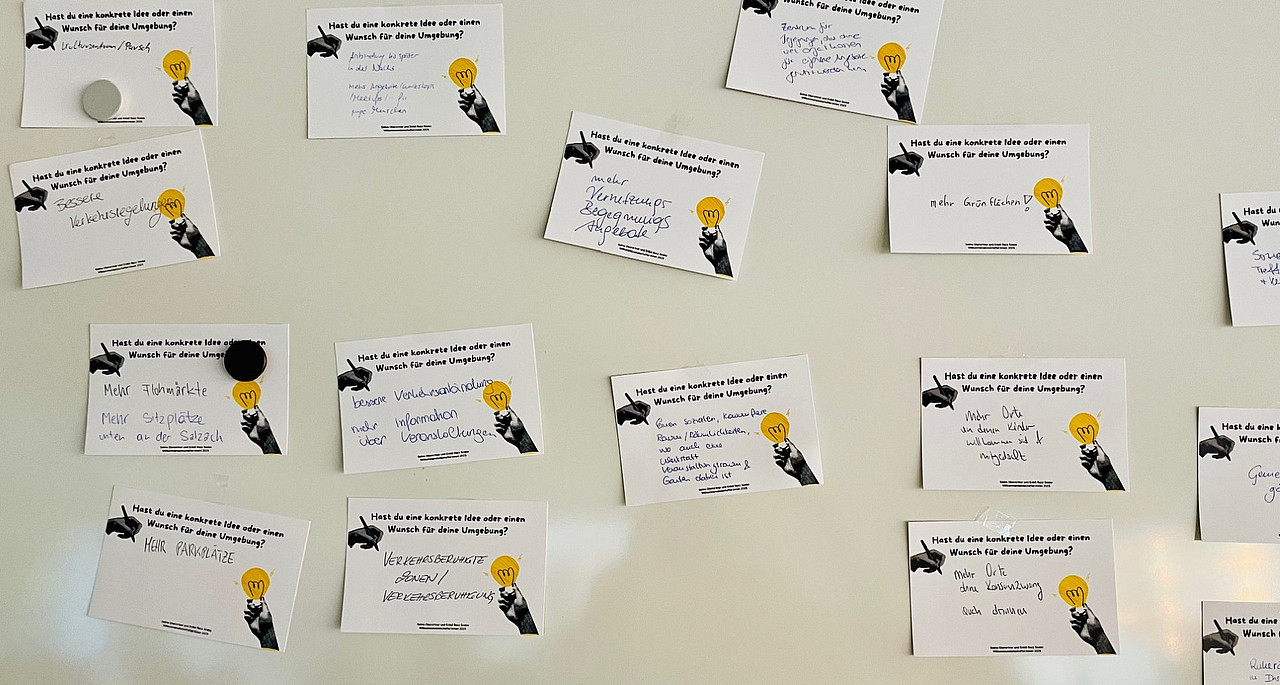 Hast du eine konkrete Idee oder einen
Wunsch für deine Umgebung?
Kulturzentrum/Parsch
Hast du eine konkrete Idee oder einen
Wunsch für deine Umgebung?
Anbindung bis später
in der Nacht
mehr Angebote/Workshops
/Meetups/ für
junge Menschen
Wunsch für deine Umgebung?
Zentrum für
Begegnungen, das ohne
viel
für eigene Angebote
genutzt werden kann
Hast du eine konkrete Idee oder einen
Wunsch für deine Umgebung?
Bessere
Verkehrsregelung
Hast du eine konkrete Idee oder einen
Wunsch für deine Umgebung?
mehr
Vernetzungs
Begegnungs
Angebote
Hast du eine konkrete Idee oder einen
Wunsch für deine Umgebung?
mehr Grünflächen!
Hast du
Wun
Hast du eine konkrete Idee oder einen
Wunsch für deine Umge
Mehr Flohmärkte
Mehr Sitzplätze
unten an der Salzach
Hast du eine konkrete Idee oder einen
Wunsch für deine Umgebung?
bessere Verkehrsanbindung
mehr Information
über Veranstaltungen
Hast du eine konkrete Idee oder einen
Wunsch für deine Umgebung?
Einen sozialen, konsumfreien
Raum/Räumlichkeiten,
wo auch eine
Werkstatt
Veranstaltungsraum &
Garten dabei ist
Hast du eine konkrete Idee oder einen
Wunsch für deine Umgebung?
Mehr Orte
an denen Kinder
willkommen sind &
mitgedacht
Hast du eine k
Wunsch f
Hast du eine konkrete Idee oder einen
Wunsch für deine Umgebung?
MEHR PARKPLÄTZE
Hast du eine konkrete Idee oder einen
Wunsch für deine Umgebung?
VERKEHRSBERUHIGTE
ZONEN/
VERKEHRSBERUHIGUNG
Hast du eine konkrete Idee oder einen
Wunsch für deine Umgebung?
Mehr Orte
ohne Konsumzwang
auch drinnen
Hast du eine
Wunsch